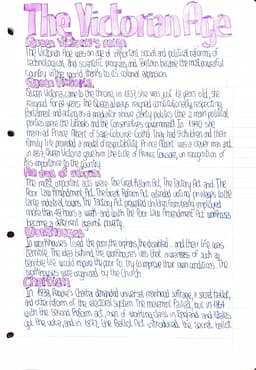 The Victorian Age
Queen Victoria's reign
The Victorian Age was an age of important social and political reforms, of
technological and scientific progress, and Britain became the most powerful
country in the world thanks to its colonial expansion.
Queen Victoria
Queen Victoria came to the throne in 1837, she was just 18 years old, she
reigned for 63 years. The Queen always reigned constitutionally, respecting
Parliament and acting as a mediator above party politics (the 2 main political
parties were the Liberals and the Conservatives government). In 1840 she
married Prince Albert of Saxe-Coburg Gotha. They had 9 children and their
family life provided a model of respectability. Prince Albert was a clever man and
in 1857 Queen Victoria gave him the title of Prince Consort, in recognition of
his importance to the country.
An age of reform
The most important acts were the Great Reform Act, the Factory Act and the
Poor Law Amendment Act. The Great Reform Act extended voting privileges to the
large industrial towns. The Factory Act prevented children from being employed
more than 48 hours a week and with the Poor Law Amendment Act workhouses
became a deterrent against poverty.
Workhouses
In workhouses lived the poor, the orphans, the disabled... and their life was
terrible. The idea behind the workhouses was that awareness of such a
terrible life would inspire the poor to try to improve their own conditions. The
workhouses were organised by the Church.
Chartism
In 1838, People's Charter demanded universal manhood suffrage, a secret ballot,
and other reform of the electoral system. The movement failed, but in 1867
with the Second Reform Act, men of working class in England and Wales
got the vote, and in 1872, the Ballot Act introduced the secret ballot.